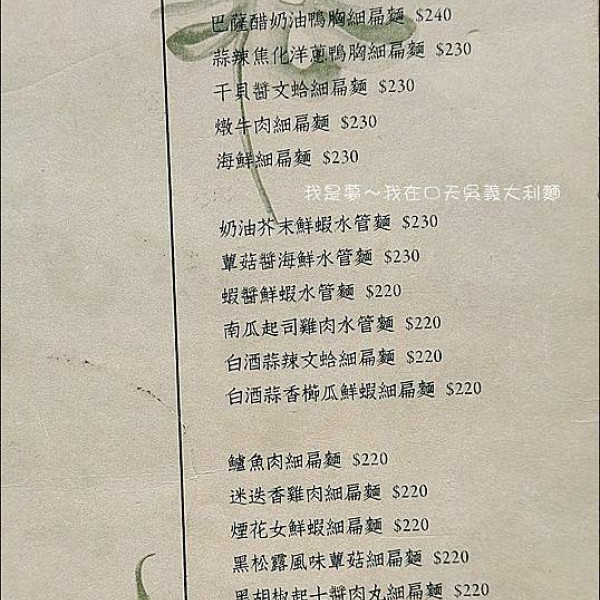 巴薩醋奶油鴨胸細扁麵 $240
蒜辣焦化洋蔥鴨胸細扁麵 $230
干貝醬文蛤細扁麵 $230
燉牛肉細扁麵 $230
海鮮細扁麵 $230
我是夢～我在口天吳義大利麵
奶油芥末鮮蝦水管麵 $230
蕈菇醬海鮮水管麵 $230
蝦醬鮮蝦水管麵 $220
南瓜起司雞肉水管麵 $220
白酒蒜辣文蛤細扁麵 $220
白酒蒜香櫛瓜鮮蝦細扁麵 $220
鱸魚肉細扁麵 $220
迷迭香雞肉細扁麵 $220
煙花女鮮蝦細扁麵 $220
黑松露風味蕈菇細扁麵 $220
黑胡椒起士醬肉丸細扁麵 $220